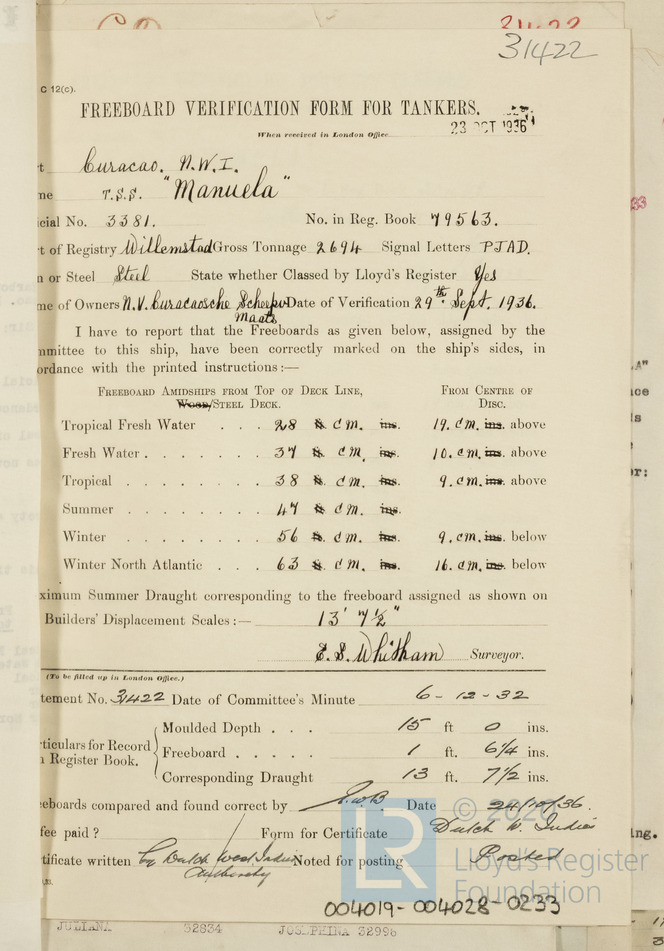 31422
31422
C 12(c).
FREEBOARD VERIFICATION FORM FOR TANKERS.
When received in London Office 23 OCT 1936
t Curacao. N.W.I.
me T.S.S. "Manuela"
cial No. 3381. No. in Reg. Book 79563.
t of Registry Willemstad Gross Tonnage 2694 Signal Letters PJAD.
n or Steel Steel State whether Classed by Lloyd's Register Yes
me of Owners N.V. Curacaosche Scheepv Maats Date of Verification 29th Sept. 1936.
I have to report that the Freeboards as given below, assigned by the
mmittee to this ship, have been correctly marked on the ship's sides, in
ordance with the printed instructions :—
FREEBOARD AMIDSHIPS FROM TOP OF DECK LINE, FROM CENTRE OF
WOOD/STEEL DECK. DISC.
Tropical Fresh Water . . . 28 ft. cm. ins. 19. cm. ins. above
Fresh Water . . . . . . 37 ft. cm. ins. 10. cm. ins. above
Tropical . . . . . . . 38 ft. cm. ins. 9. cm. ins. above
Summer . . . . . . . 47 ft. cm. ins.
Winter . . . . . . . 56 ft. cm. ins. 9. cm. ins. below
Winter North Atlantic . . . 63 ft. cm. ins. 16. cm. ins. below
ximum Summer Draught corresponding to the freeboard assigned as shown on
Builders' Displacement Scales :— 13' 7½"
E. S. Whitham Surveyor.
(To be filled up in London Office.)
tement No. 31422 Date of Committee's Minute 6-12-32
Moulded Depth . . . 15 ft 0 ins.
rticulars for Record
Freeboard . . . . . 1 ft. 6¼ ins.
n Register Book.
Corresponding Draught 13 ft. 7½ ins.
eeboards compared and found correct by Date 24/10/36.
fee paid ? Form for Certificate Dutch W. Indies
rtificate written by Dutch West Indies Authority Noted for posting Posted
© 2020
LR
Lloyd's Register
Foundation
004019-004028-0233
JULIANA 32834 JOSEPHINA 32996